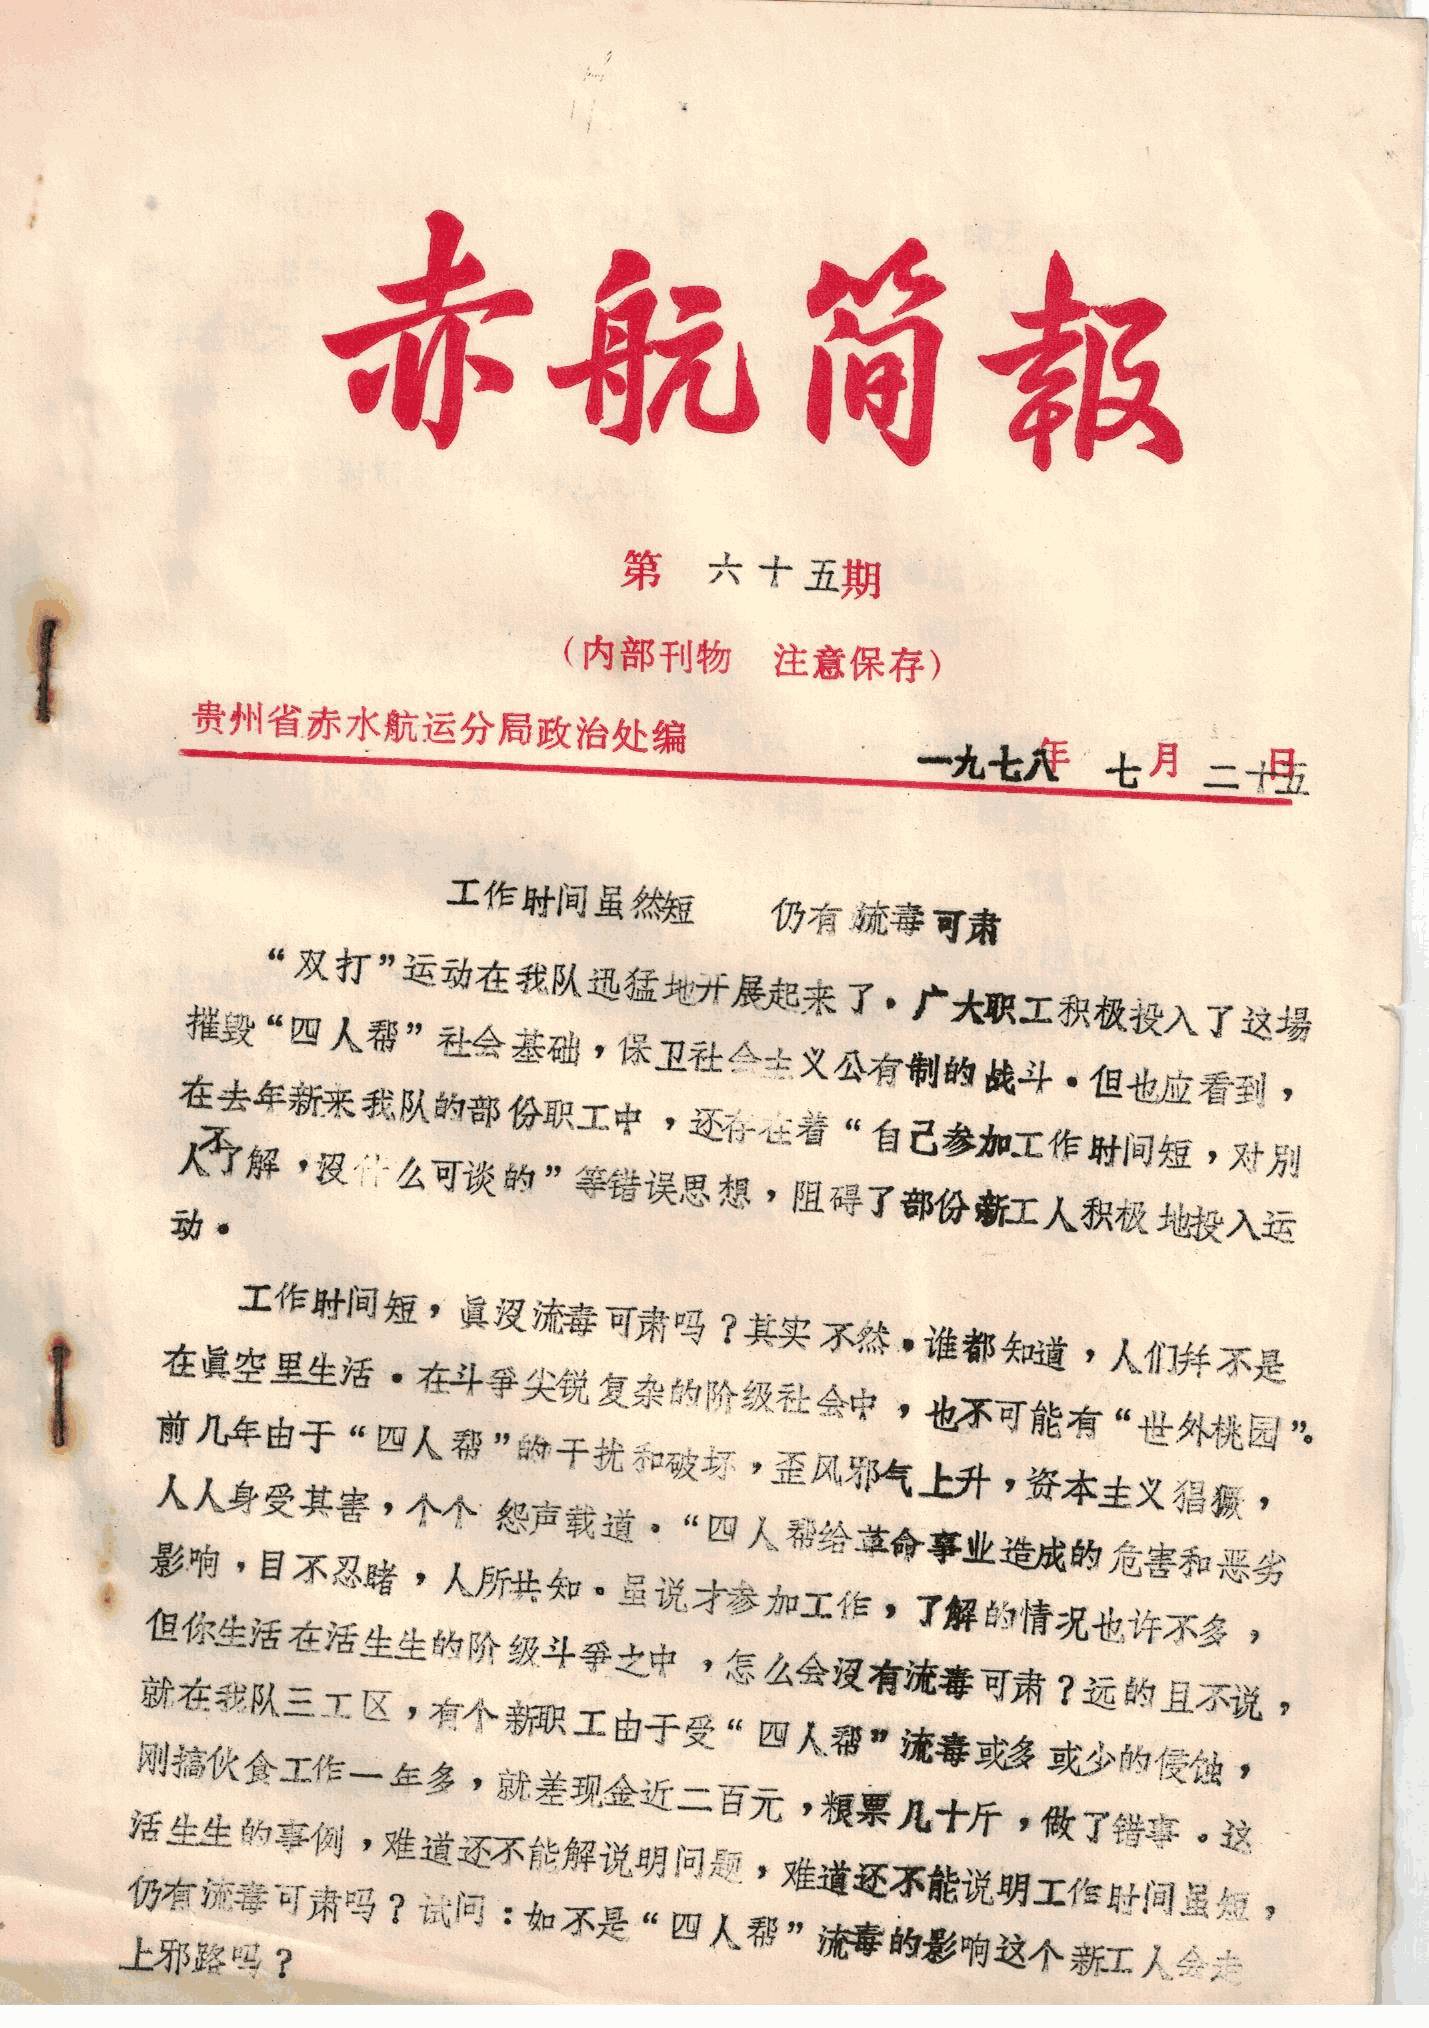 赤航简报
第 六十五期
（内部刊物 注意保存）
贵州省赤水航运分局政治处编
一九七八年 七月 二十五日
工作时间虽然短 仍有流毒可肃
“双打”运动在我队迅猛地开展起来了。广大职工积极投入了这場
摧毁“四人帮”社会基础，保卫社会主义公有制的战斗。但也应看到，
在去年新来我队的部份职工中，还存在着“自己参加工作时间短，对别
人不了解，没什么可谈的”等错误思想，阻碍了部份新工人积极地投入运
动。
工作时间短，眞没流毒可肃吗？其实不然。谁都知道，人们幷不是
在眞空里生活。在斗爭尖锐复杂的阶级社会中，也不可能有“世外桃园”。
前几年由于“四人帮”的干扰和破坏，歪风邪气上升，资本主义猖獗，
人人身受其害，个个怨声载道。“四人帮给革命事业造成的危害和恶劣
影响，目不忍睹，人所共知。虽说才参加工作，了解的情况也许不多，
但你生活在活生生的阶级斗爭之中，怎么会没有流毒可肃？远的且不说，
就在我队三工区，有个新职工由于受“四人帮”流毒或多或少的侵蚀，
刚搞伙食工作一年多，就差现金近二百元，粮票几十斤，做了错事。这
活生生的事例，难道还不能解说明问题，难道还不能说明工作时间虽短，
仍有流毒可肃吗？试问：如不是“四人帮”流毒的影响这个新工人会走
上邪路吗？